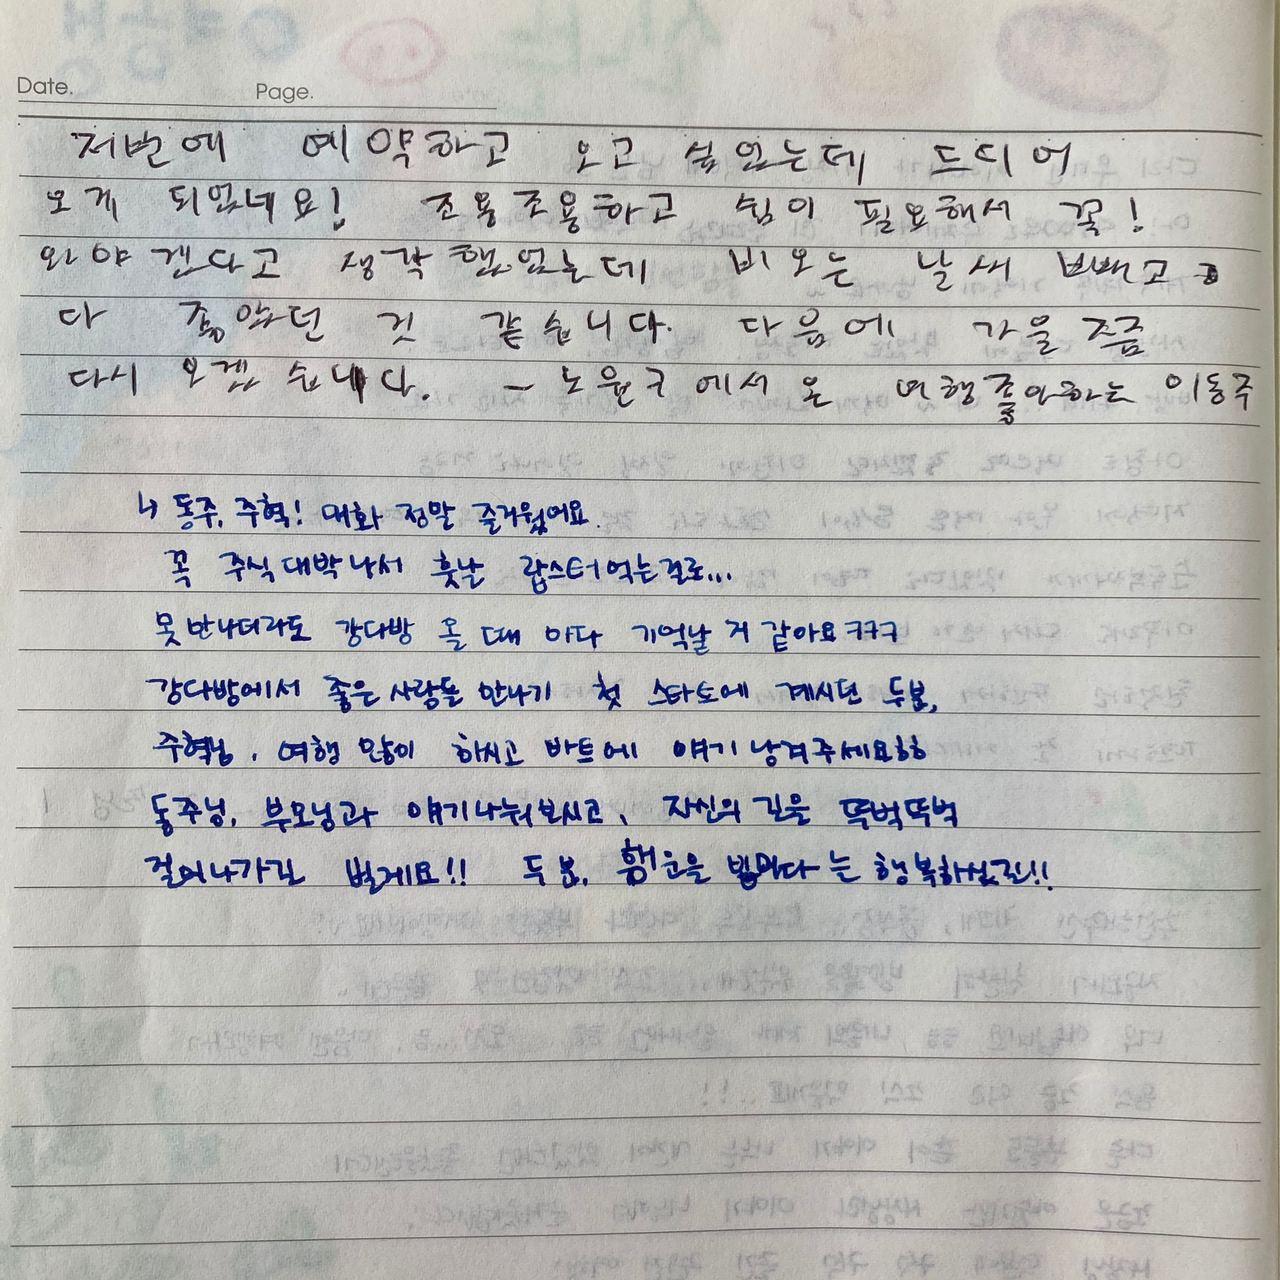 Date. Page.
저번에 예약하고 오고 싶었는데 드디어
오게 되었네요! 조용조용하고 쉼이 필요해서 꼭!
와야겠다고 생각했었는데 비오는 날씨 빼고
다 좋았던 것 같습니다. 다음에 가을쯤
다시 오겠습니다. - 노원구에서 온 여행좋아하는 이동주
↳ 동주, 주혁! 대화 정말 즐거웠어요.
꼭 주식대박나서 훗날 랍스터먹는걸로...
못만나더라도 강다방 올 때 마다 기억날 거 같아요ㅋㅋㅋ
강다방에서 좋은사람들 만나기 첫 스타트에 계시던 두분,
주혁님, 여행 많이 하시고 바트에 얘기 남겨주세요ㅎㅎ
동주님, 부모님과 얘기나눠보시고, 자신의 길을 뚜벅뚜벅
걸어나가길 빌게요!! 두분, 행운을 빕니다 는 행복하십쇼!!